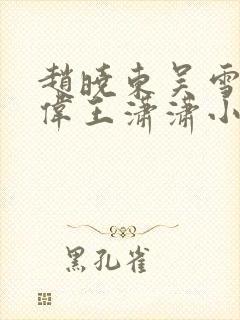 趙曉東吴雪
偉王潇潇小
黑孔雀